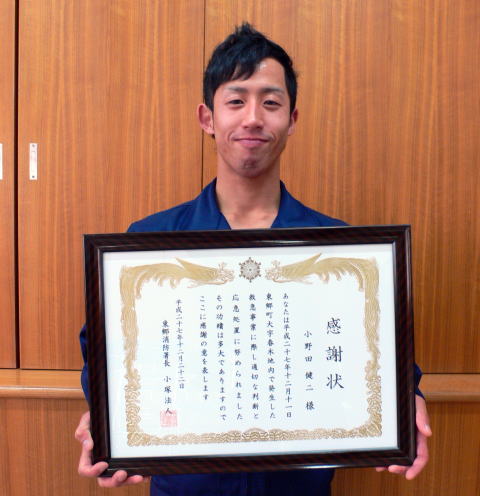 感謝状
小野田 健二 様
あなたは平成二十七年十二月十一日
東郷町大字春木地内で発生した
救急事案に際し適切な判断と
応急処置に努められました
その功績は多大でありますので
ここに感謝の意を表します
平成二十七年十二月二十二日
東郷消防署長 小塚 法人